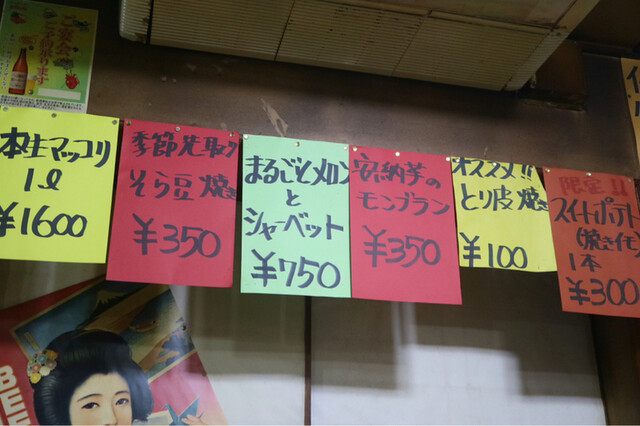 ご宴会
ご予約承ります
本生マッコリ
1ℓ
¥1600
季節先取り
そら豆焼き
¥350
まるごとメロン
と
シャーベット
¥750
安納芋の
モンブラン
¥350
オススメ!!
とり皮焼き
¥100
限定
スイートポテト
(焼きイモ)
1本
¥300
BEE